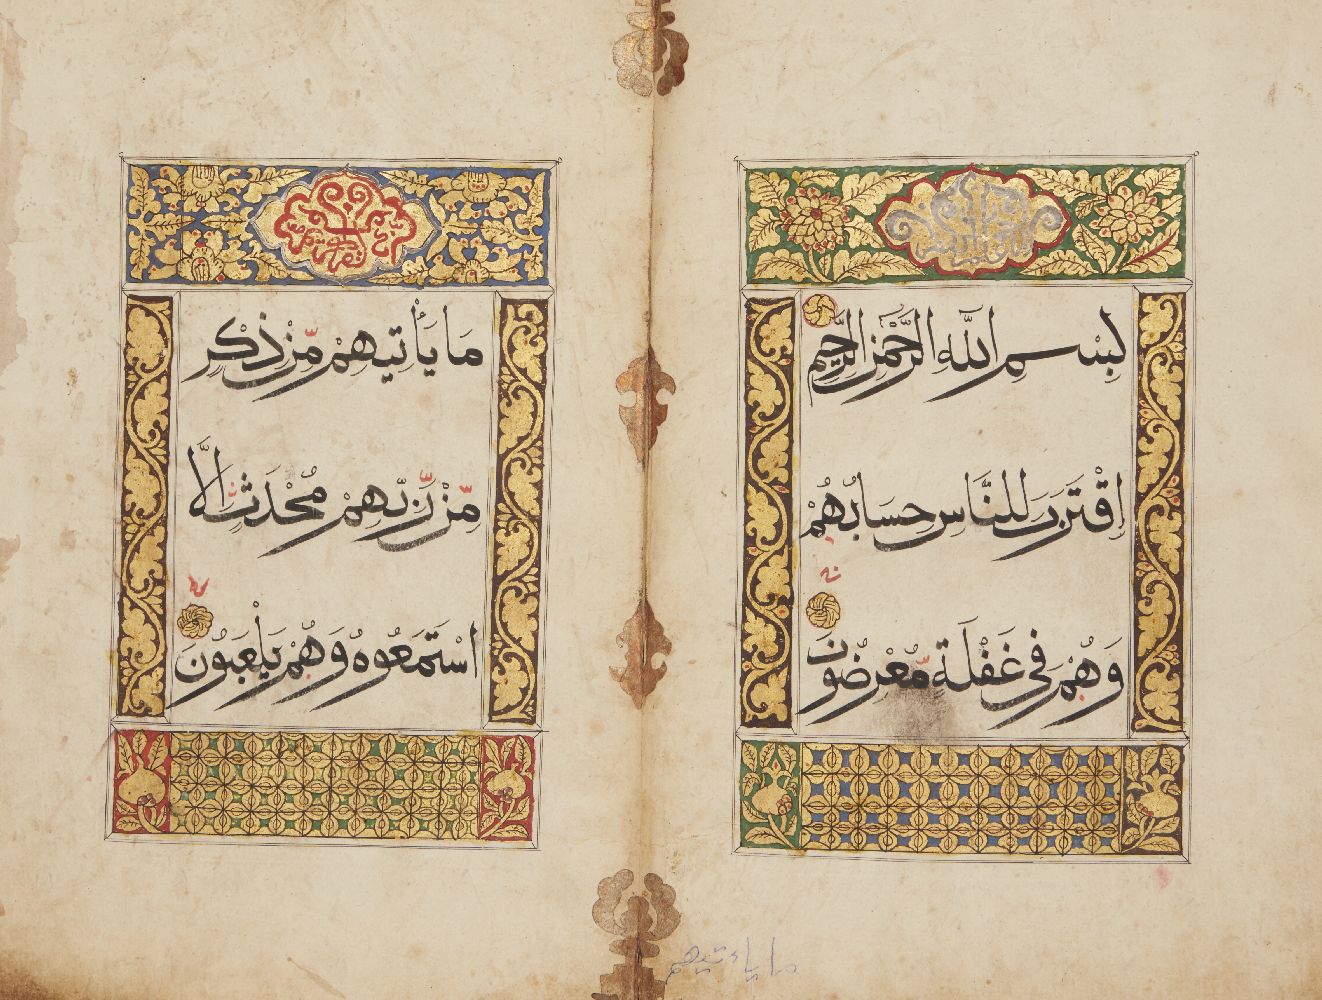 بِسْمِ اللَّهِ الرَّحْمَٰنِ الرَّحِيمِ
اِقْتَرَبَ لِلنَّاسِ حِسَابُهُمْ
وَهُمْ فِي غَفْلَةٍ مُّعْرِضُونَ
مَا يَأْتِيهِمْ مِّنْ ذِكْرٍ
مِّنْ رَّبِّهِمْ مُحْدَثٍ اِلَّا
اسْتَمَعُوهُ وَهُمْ يَلْعَبُونَ
ما ياءتيهم